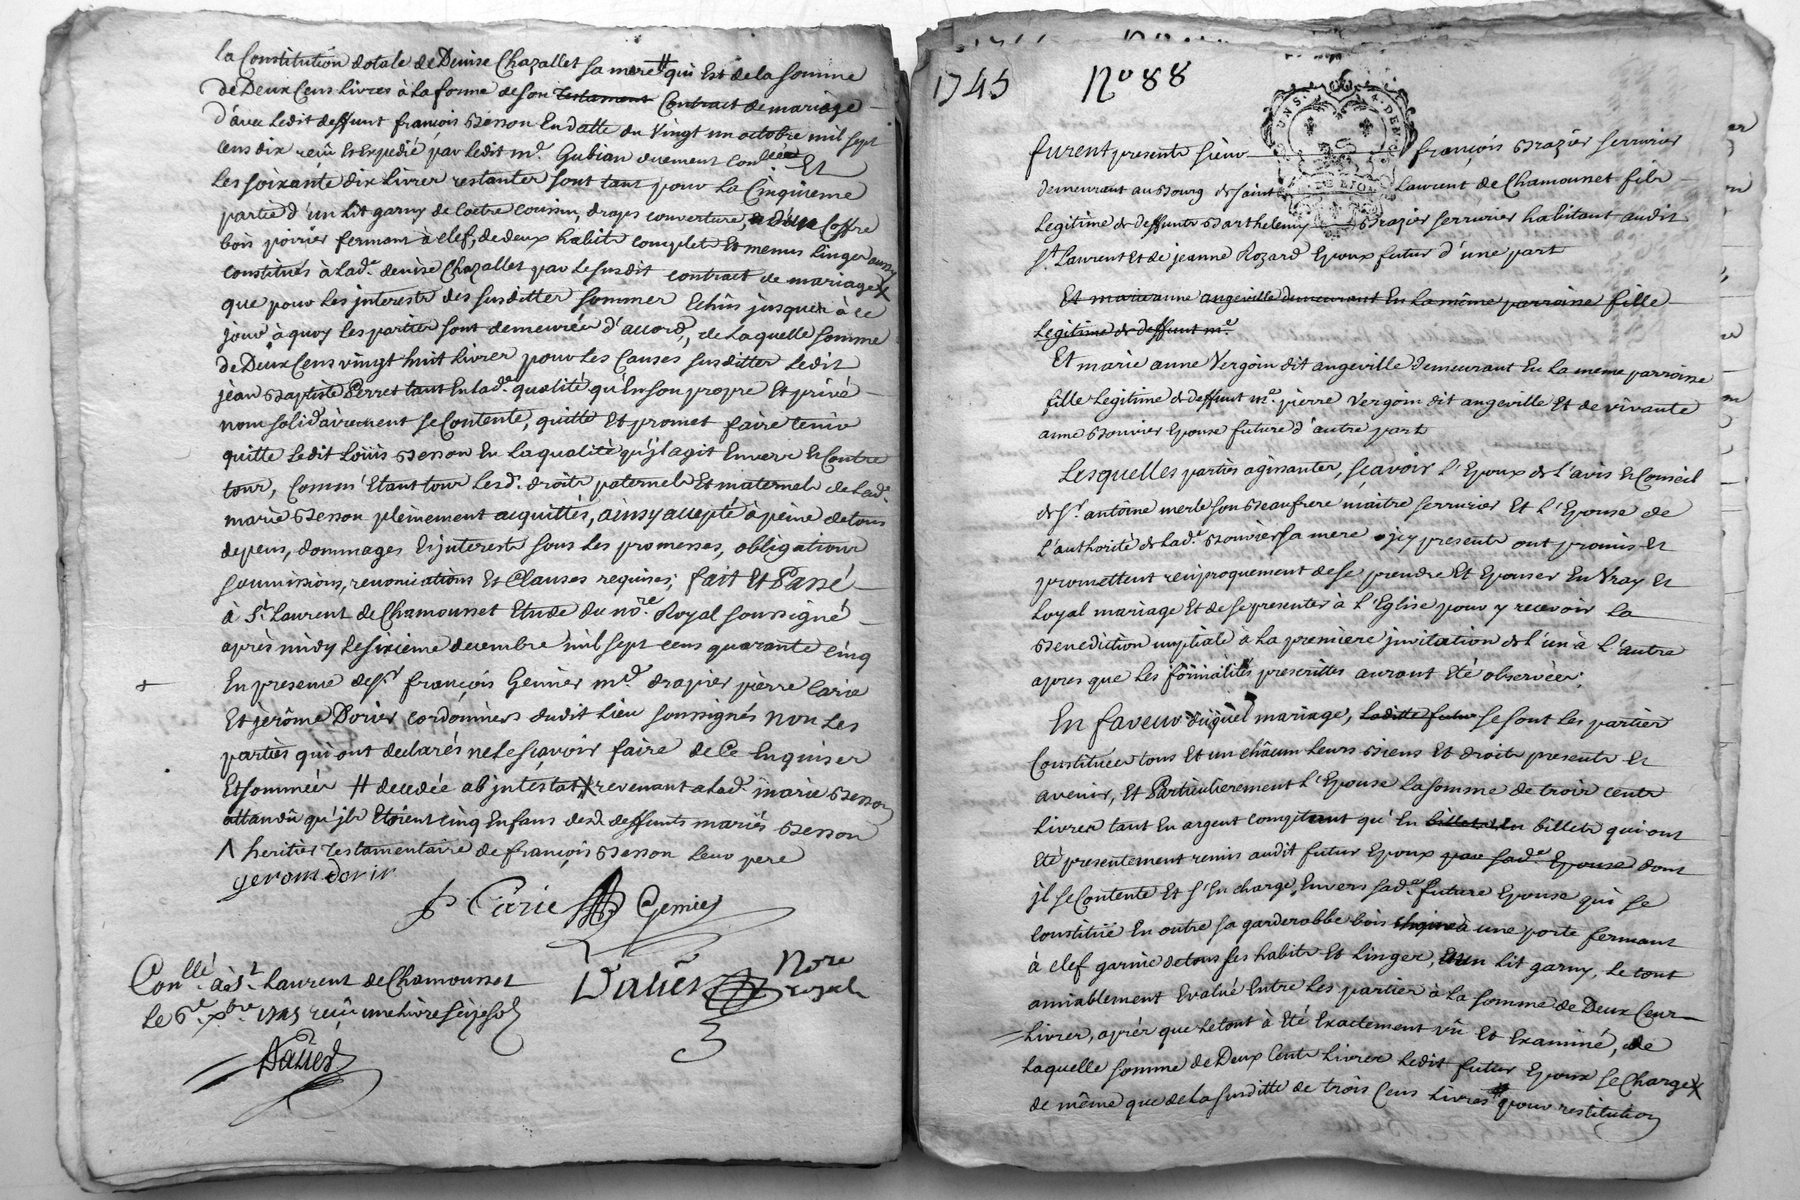 la Constitution dotale de Denise Chazallet sa mere # qui Est de la somme
de Deux Cens livres à la forme de son testament Contract de mariage
d'avec ledit deffunt françois Besson En datte du Vingt un octobre mil sept
cens dix reçû Et Expedié par ledit me. Gubian duement conllée Et
les soixante dix livres restantes sont tant pour la Cinquieme
partie d'un lit garny de coetre coussin, draps couverture, d'un Coffre
bois poirier fermant à clef, de deux habits complets Et menus linges aussy
constitués à lade. denise Chazallet par le susdit contract de mariage X
que pour les interests des susdittes sommes Echûs jusques à ce
jour, à quoy les parties sont demeurées d'accord, de laquelle somme
de Deux Cens vingt huit livres pour les Causes susdittes ledit
jean Baptiste Perret tant En lade. qualité qu'En son propre Et privé
nom solidairement se Contente, quitte Et promet faire tenir
quitte ledit Loüis Besson En la qualité qu'jl agit Envers Et Contre
tous, comm' Etant tous lesd. droits paternels Et maternels de lade.
marie Besson pleinement acquittés, ainsy accepté à peine de tous
depens, dommages Et jnterests sous les promesses, obligations
soumissions, renonciations Et Clauses requises; fait Et Passé
à St. Laurent de Chamousset Etude du nore. Royal soussigné
après midy le sixieme decembre mil sept cens quarante cinq
En presence de sr. françois Genier md. drapier pierre Carie
Et jerôme Dorier cordonniers dudit lieu soussignés non les
parties qui ont declarés ne le sçavoir faire de Ce Enquises
Et sommées # decedée ab jntestat X revenant a lad. marie Besson
attandû qu'jls Etoient cinq Enfans desd. deffunts mariés Besson
Λ heritier testamentaire de françois Besson leur pere
gerome dorier
p Carie Genier
Dalier Nore
royal
Conllé à St. Laurent de Chamousset
le 6e. xbre. 1745 reçû une livre seize sols
Dalier
1745 No 88
furent presents sieur françois Brazier serrurier
demeurant au Bourg de saint Laurent de Chamousset fils
legitime de deffunts Barthelemy Brazier serrurier habitant audit
St. Laurent Et de jeanne Rozard Epoux futur d'une part
Et marie anne angeville demeurant En la même parroisse fille
legitime de deffunt me.
Et marie anne Vergoin dit angeville demeurant En la meme parroisse
fille legitime de deffunt me. pierre Vergoin dit angeville Et de vivante
anne Bouvier Epouse future d'autre part
Lesquelles parties agissantes, sçavoir l'Epoux de l'avis Et Conseil
de sr. antoine merle son Beaufrere maître serrurier Et l'Epouse de
l'authorité de lade. Bouvier sa mere jcy presents ont promis Et
promettent reciproquement de se prendre Et Epouser En Vray Et
loyal mariage Et de se presenter à l'Eglise pour y recevoir la
Benediction nuptiale à la premiere jnvitation de l'un à l'autre
apres que les formalités prescrittes auront Eté observées;
En faveur duquel mariage, laditte futur se sont les parties
Constituées tous Et un châcun leurs Biens Et droits presents Et
avenir, Et Particulierement l'Epouse la somme de trois cents
livres tant En argent comptant qu'En billets un billets qui ont
Eté presentement remis audit futur Epoux par sade. Epouse dont
jl se Contente Et s'En charge, Envers sade. future Epouse qui se
constituë En outre sa garderobbe bois à une porte fermant
à clef garnie de tous ses habits Et linges, un lit garny, le tout
amiablement Evalué Entre les parties à la somme de Deux Cens
livres, aprés que le tout à Eté Exactement vû Et Examiné, de
laquelle somme de Deux Cents livres ledit futur Epoux se charge X
de même que de la susditte de trois Cens livres # pour restitution